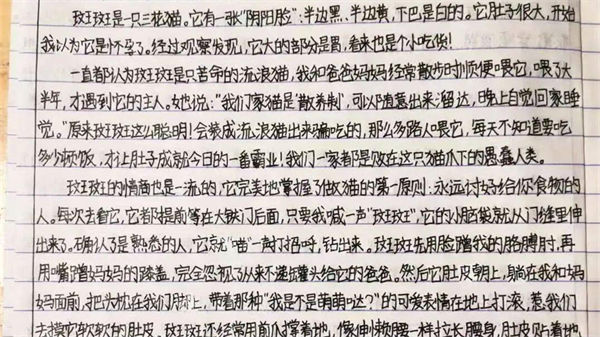 玟玟是一只三花猫。它有一张“阴阳脸”:半边黑、半边黄,下巴是白的。它肚子很大,开始
我以为它是怀孕了。经过观察发现,它大的部分是胃,看来也是个小吃货!
一直都认为玟玟是只苦命的流浪猫,我和爸爸妈妈经常散步时顺便喂它,喂了大
半年,才遇到它的主人。她说:“我们家猫是‘散养制’,可以随意出来溜达,晚上自觉回家睡
觉。”原来玟玟这么聪明!会装成流浪猫出来骗吃的,那么多路人喂它,每天不知道要吃
多少顿饭,才让肚子成就今日的一番霸业!我们一家都是败在这只猫爪下的愚蠢人类。
玟玟的情商也是一流的,它完美地掌握了做猫的第一原则:永远讨好给你食物的
人。每次去看它,它都提前等在大铁门后面,只要我喊一声“玟玟”,它的小脑袋就从门缝里伸
出来了。确认了是熟悉的人,它就“喵”一声打招呼,钻出来。玟玟先用脸蹭我的胳膊肘,再
用嘴蹭妈妈的膝盖,完全忽视了从来不递罐头给它的爸爸。然后它肚皮朝上,躺在我和妈
妈面前,把头枕在我们脚上,带着那种“我是不是萌萌哒?”的可爱表情在地上打滚,惹我们
去摸它软软的肚皮。玟玟还经常用前爪撑着地,像伸懒腰一样拉长腰身,肚皮贴着地,